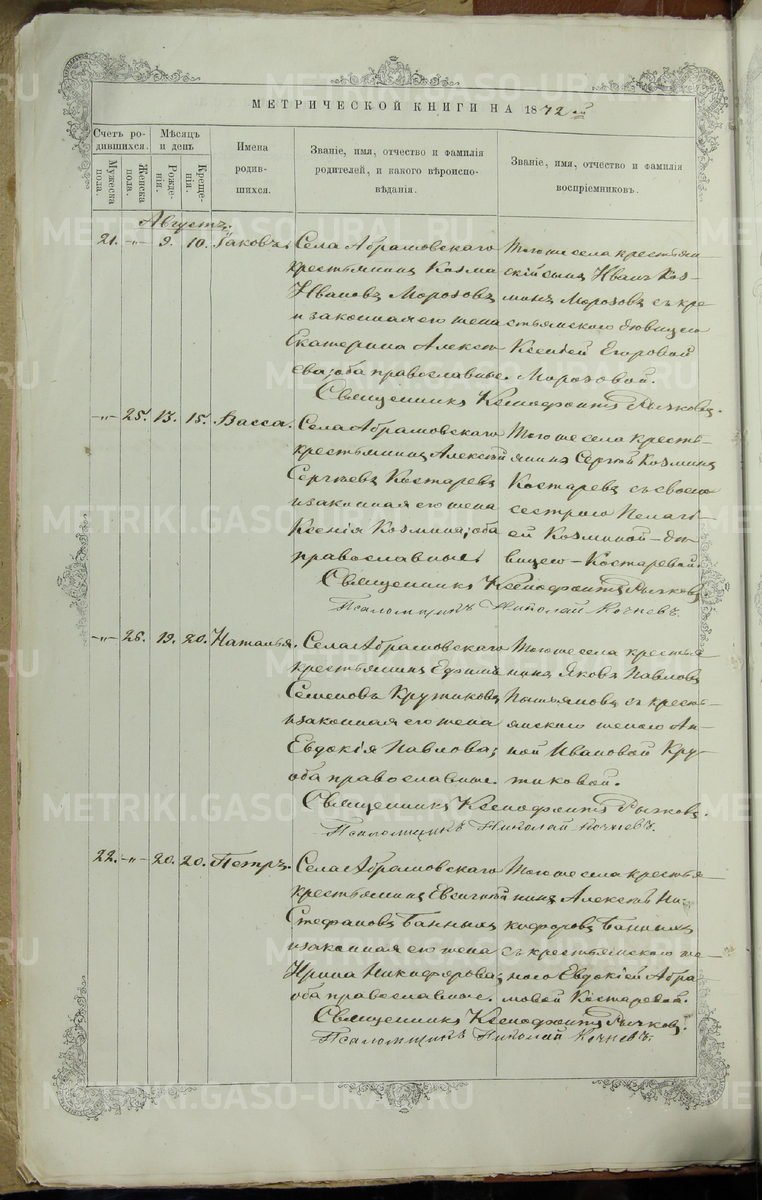 МЕТРИЧЕСКОЙ КНИГИ НА 1872 ой
Счетъ ро-
дившихся.
Мужеска пола.
Женска пола.
Мѣсяцъ
и день
Рожде-
нія.
Креще-
нія.
Имена
родив-
шихся.
Званіе, имя, отчество и фамилія
родителей, и какого вѣроиспо-
вѣданія.
Званіе, имя, отчество и фамилія
воспріемниковъ.
Августъ.
21. -"- 9. 10. Іаковъ.
Села Абрамовскаго
крестьянинъ Козма
Ивановъ Морозовъ
и законная его жена
Екатерина Алексѣ-
ева; оба православные.
Тогоже села крестьян-
скій сынъ Иванъ Коз-
минъ Морозовъ съ кре-
стьянскою дѣвицею
Ксеніей Егоровой
Морозовой.
Священникъ Ксенофонтъ Рычковъ.
-"- 25. 13. 15. Васса.
Села Абрамовскаго
крестьянинъ Алексѣй
Сергѣевъ Костаревъ
и законная его жена
Ксенія Козмина; оба
православные.
Тогоже села кресть-
янинъ Сергѣй Козминъ
Костаревъ съ своею
сестрою Пелагі-
ей Козминой - дѣ-
вицею - Костаревой.
Священникъ Ксенофонтъ Рычковъ
Псаломщикъ Николай Кочневъ.
-"- 26. 19. 20. Наталья.
Села Абрамовскаго
крестьянинъ Ефимъ
Семеновъ Крутиковъ
и законная его жена
Евдокія Павлова;
оба православные.
Тогоже села крестья-
нинъ Яковъ Павловъ
съ кресть-
янскою женою Ан-
ной Ивановой Кру-
тиковой.
Священникъ Ксенофонтъ Рычковъ.
Псаломщикъ Николай Кочневъ.
22. -"- 20. 20. Петръ.
Села Абрамовскаго
крестьянинъ Евсигній
Стефановъ Банныхъ
и законная его жена
Ирина Никифорова;
оба православные.
Тогоже села крестья-
нинъ Алексѣй Ни-
кифоровъ Банныхъ
съ крестьянскою же-
ною Евдокіей Абра-
мовой Костаревой.
Священникъ Ксенофонтъ Рычковъ.
Псаломщикъ Николай Кочневъ.
METRIKI.GASO-URAL.RU